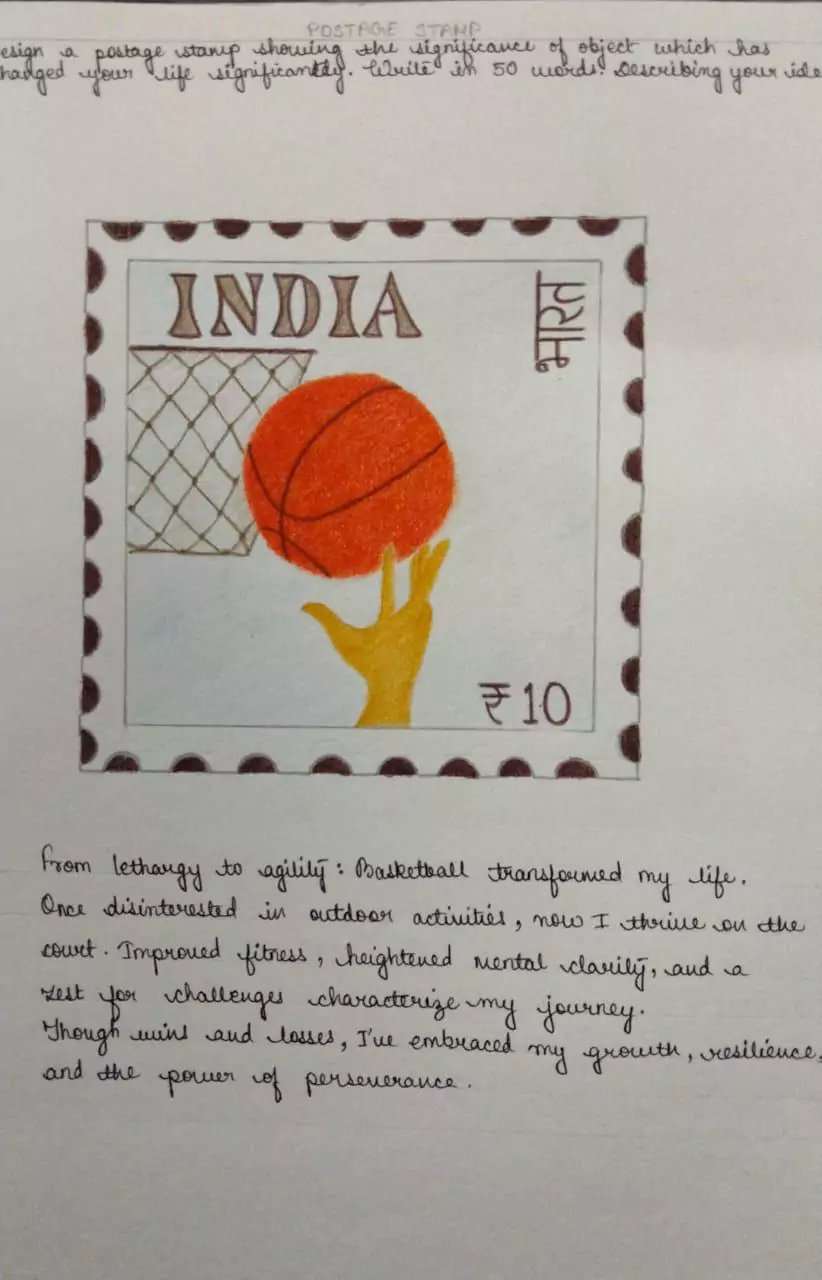 POSTAGE STAMP
esign a postage stamp showing the significance of object which has
hanged your life significantly. Write in 50 words. Describing your ide
INDIA
भारत
₹10
From lethargy to agility: Basketball transformed my life.
Once disinterested in outdoor activities, now I thrive on the
court. Improved fitness, heightened mental clarity, and a
zest for challenges characterize my journey.
Though wins and losses, I've embraced my growth, resilience,
and the power of perseverance.